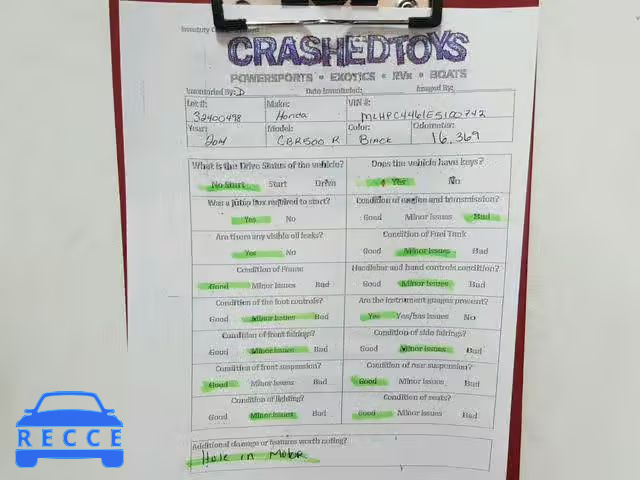 CRASHEDTOYS
POWERSPORTS • EXOTICS • RVs • BOATS
Inventoried By: D Date Inventoried: Imaged By:
Lot #: Make: VIN #:
32400498 Honda MLHPC4461E5100742
Year: Model: Color: Odometer:
2014 CBR500 R Black 16,369
What is the Drive Status of the vehicle? Does the vehicle have keys?
No Start Start Drive Yes No
Was a jump box required to start? Condition of engine and transmission?
Yes No Good Minor Issues Bad
Are there any visible oil leaks? Condition of Fuel Tank
Yes No Good Minor Issues Bad
Condition of Frame Handlebar and hand controls condition?
Good Minor Issues Bad Good Minor Issues Bad
Condition of the foot controls? Are the instrument gauges present?
Good Minor Issues Bad Yes Yes/has Issues No
Condition of front fairings? Condition of side fairings?
Good Minor Issues Bad Good Minor Issues Bad
Condition of front suspension? Condition of rear suspension?
Good Minor Issues Bad Good Minor Issues Bad
Condition of lighting? Condition of seats?
Good Minor Issues Bad Good Minor Issues Bad
Additional damage or features worth noting?
Hole in Motor
RECCE